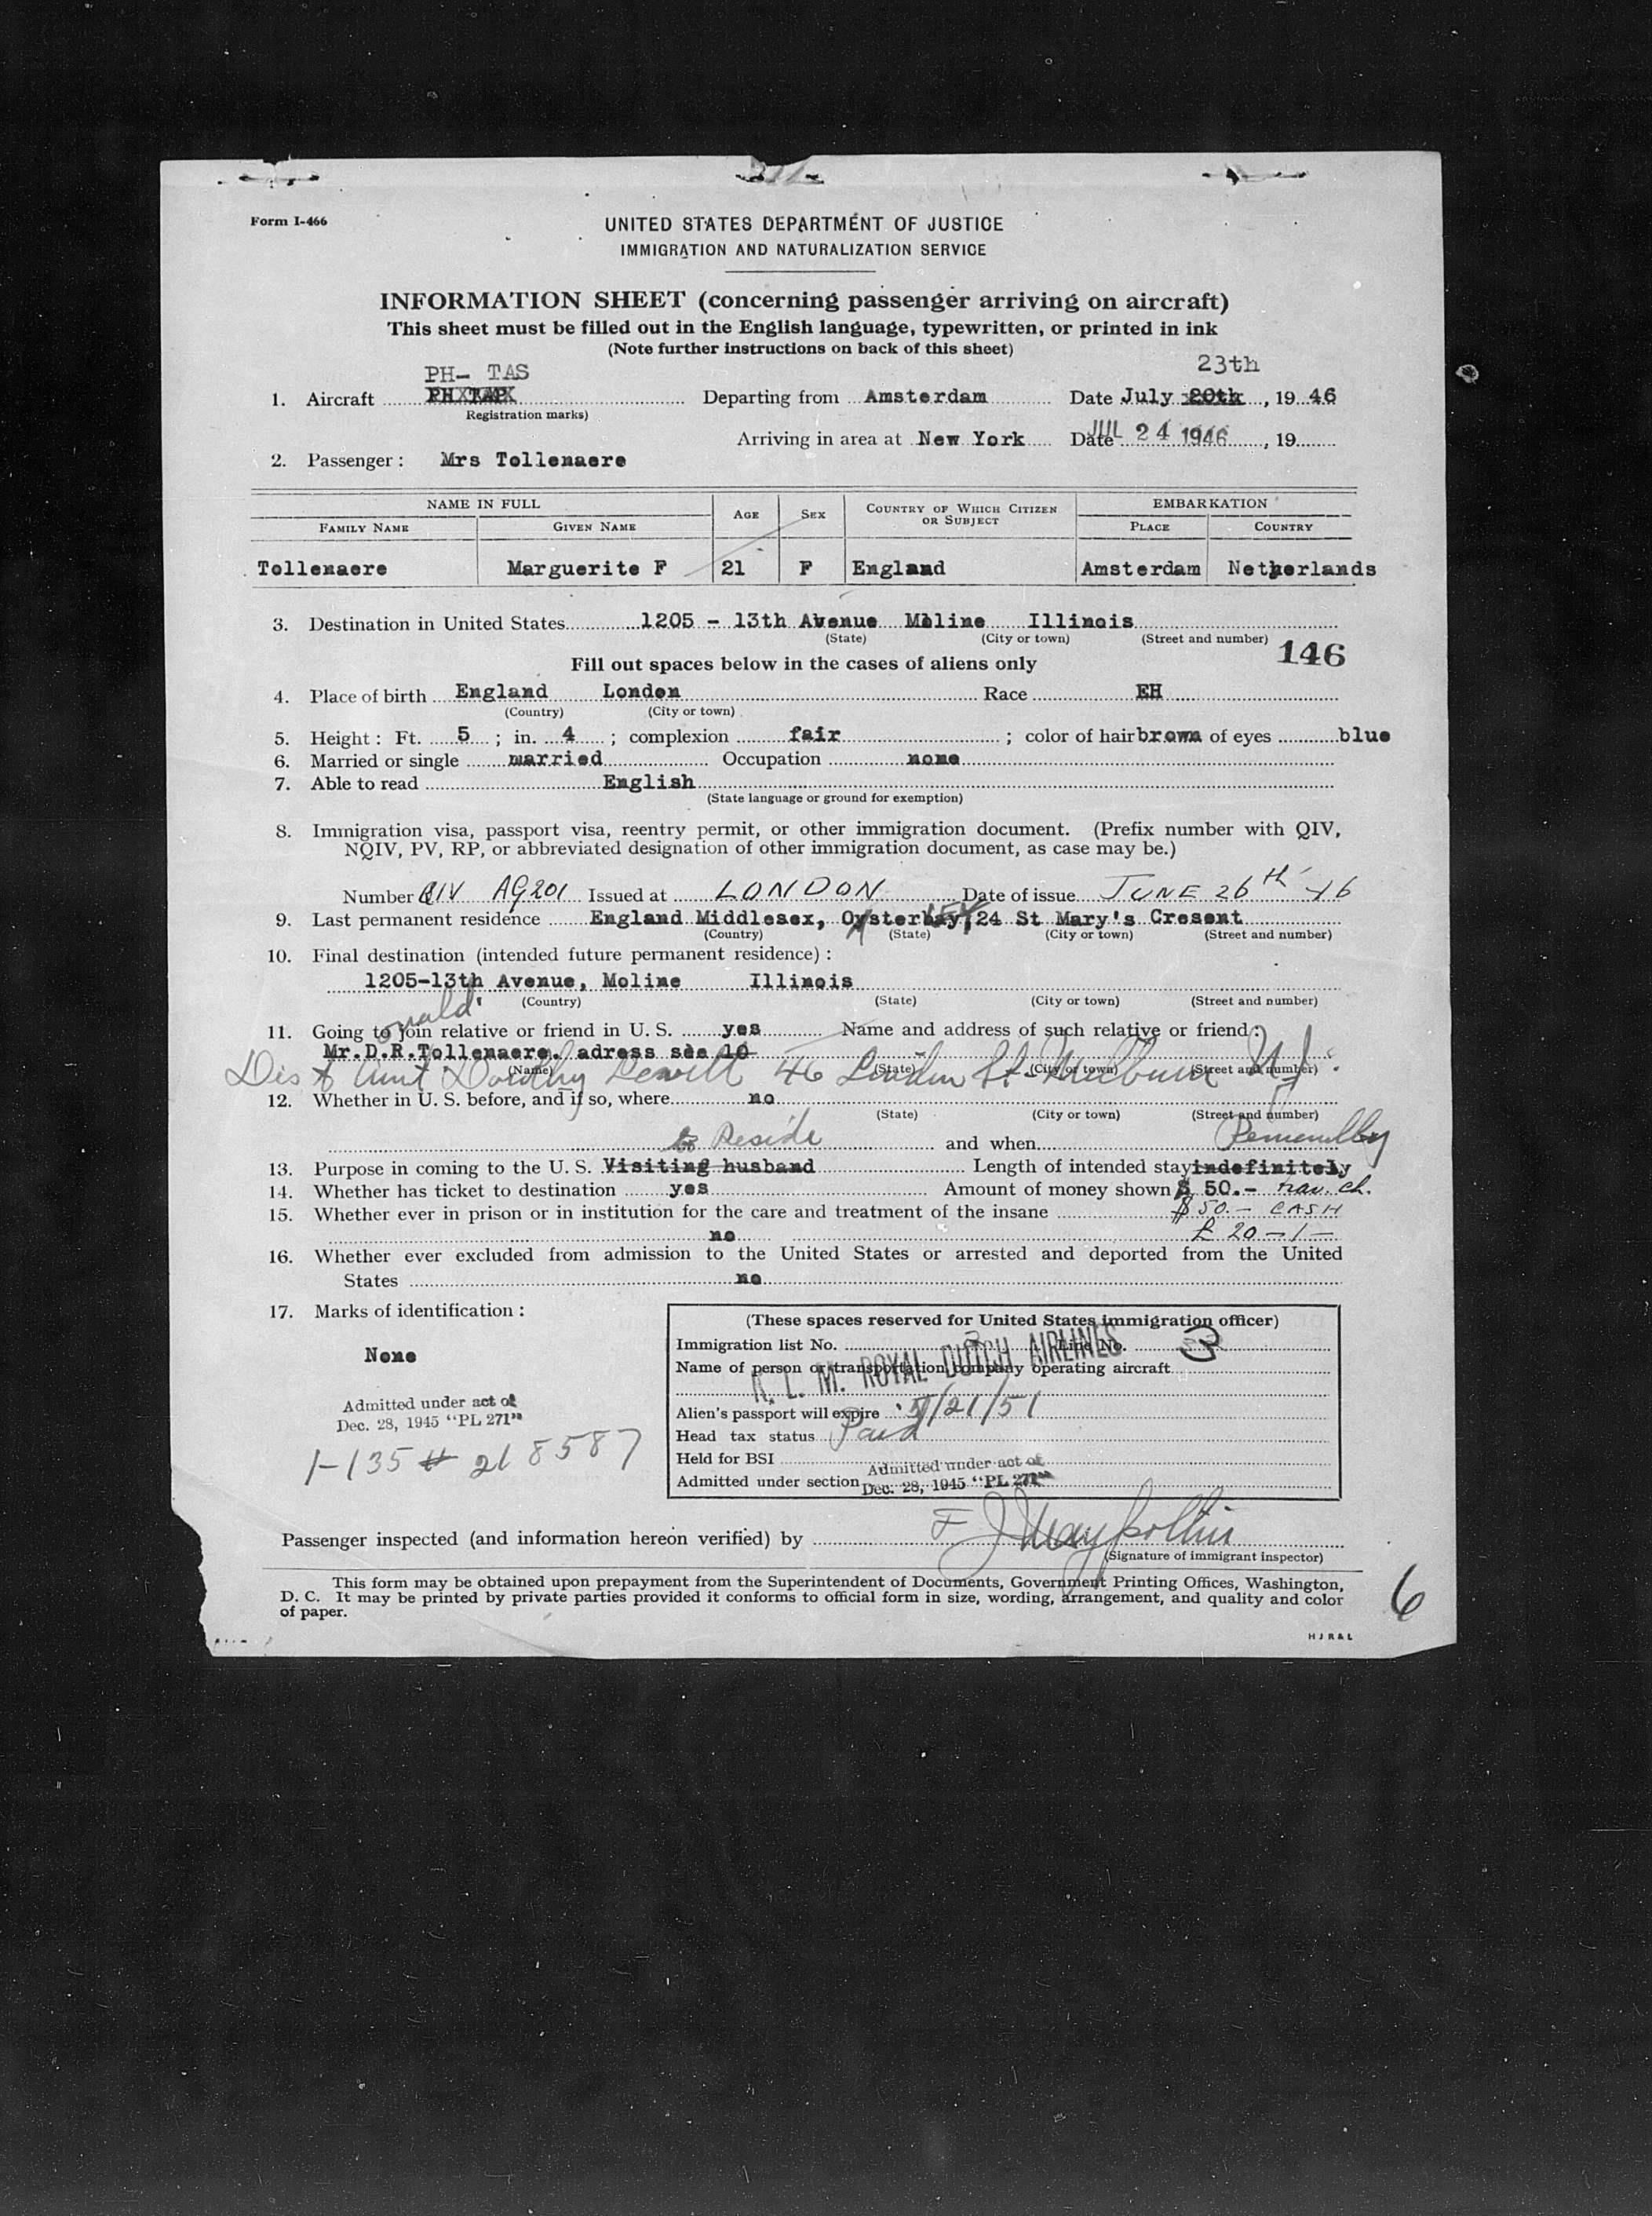 Form I-466
UNITED STATES DEPARTMENT OF JUSTICE
IMMIGRATION AND NATURALIZATION SERVICE
INFORMATION SHEET (concerning passenger arriving on aircraft)
This sheet must be filled out in the English language, typewritten, or printed in ink
(Note further instructions on back of this sheet)
PH- TAS 23th
1. Aircraft PH TAP Departing from Amsterdam Date July 20th, 19 46
Registration marks)
Arriving in area at New York Date JUL 24 1946, 19
2. Passenger: Mrs Tollenaere
NAME IN FULL AGE SEX COUNTRY OF WHICH CITIZEN OR SUBJECT EMBARKATION
FAMILY NAME GIVEN NAME PLACE COUNTRY
Tollenaere Marguerite F 21 F England Amsterdam Netherlands
3. Destination in United States 1205 - 13th Avenue Moline Illinois
(State) (City or town) (Street and number)
146
Fill out spaces below in the cases of aliens only
4. Place of birth England London Race EH
(Country) (City or town)
5. Height: Ft. 5; in. 4; complexion fair; color of hair brown of eyes blue
6. Married or single married Occupation none
7. Able to read English
(State language or ground for exemption)
8. Immigration visa, passport visa, reentry permit, or other immigration document. (Prefix number with QIV,
NQIV, PV, RP, or abbreviated designation of other immigration document, as case may be.)
Number QIV AG201 Issued at LONDON Date of issue JUNE 26th 46
9. Last permanent residence England Middlesex, Oysterbay, 24 St Mary's Cresent
(Country) (State) (City or town) (Street and number)
10. Final destination (intended future permanent residence):
1205-13th Avenue, Moline Illinois
(Country) (State) (City or town) (Street and number)
onald
11. Going to join relative or friend in U. S. yes Name and address of such relative or friend:
Mr.D.R.Tollenaere. adress see 10
(Name) (State) (City or town) (Street and number)
Aunt Dorothy 46 St- N J
12. Whether in U. S. before, and if so, where no
(State) (City or town) (Street and number)
to Reside and when
13. Purpose in coming to the U. S. Visiting husband Length of intended stay indefinitely
14. Whether has ticket to destination yes Amount of money shown $ 50.- trav. ch.
15. Whether ever in prison or in institution for the care and treatment of the insane $ 50.- CASH
no £ 20-1-
16. Whether ever excluded from admission to the United States or arrested and deported from the United
States no
17. Marks of identification:
None
Admitted under act of
Dec. 28, 1945 "PL 271"
1-135 # 218587
(These spaces reserved for United States immigration officer)
Immigration list No. Line No. 3
Name of person or transportation company operating aircraft
K. L. M. ROYAL DUTCH AIRLINES
Alien's passport will expire 5/21/51
Head tax status Paid
Held for BSI
Admitted under section Admitted under act of
Dec. 28, 1945 "PL 271"
Passenger inspected (and information hereon verified) by
(Signature of immigrant inspector)
This form may be obtained upon prepayment from the Superintendent of Documents, Government Printing Offices, Washington,
D. C. It may be printed by private parties provided it conforms to official form in size, wording, arrangement, and quality and color
of paper.
6
H J R & L